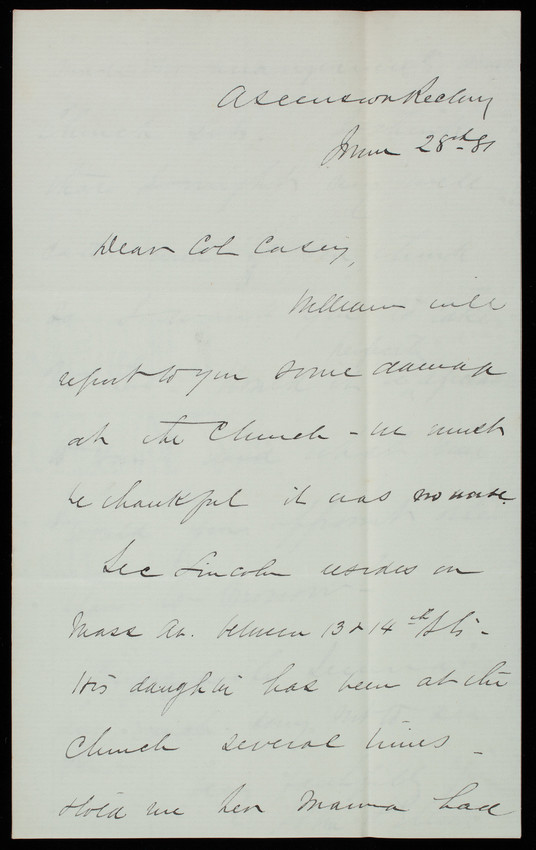 Ascension Rectory
June 28th 81
Dear Col Casey,
William will
report to you some damage
at the Church - we must
be thankful it was no worse.
Sec Lincoln resides on
Mass Av. between 13 & 14th Sts -
His daughter has been at the
Church several times -
& told me her Mama had